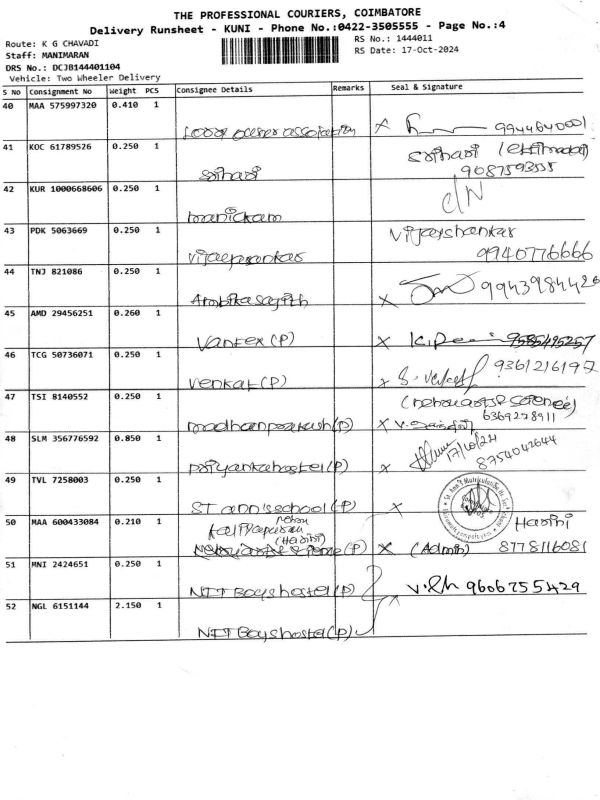 THE PROFESSIONAL COURIERS, COIMBATORE
Delivery Runsheet - KUNI - Phone No.:0422-3505555 - Page No.:4
Route: K G CHAVADI
RS No.: 1444011
Staff: MANIMARAN
RS Date: 17-Oct-2024
DRS No.: DCJB144401104
Vehicle: Two Wheeler Delivery
S No Consignment No Weight PCS Consignee Details Remarks Seal & Signature
40 MAA 575997320 0.410 1
association x 9944640001
41 KOC 61789526 0.250 1
srihari srihari
9087593555
42 KUR 1000668606 0.250 1
manickam C/N
43 PDK 5063669 0.250 1
Vijayshankar
9940776666
44 TNJ 821086 0.250 1
Ambikasajith x 9943984426
45 AMD 29456251 0.260 1
Vantex (P) x 9585495257
46 TCG 50736071 0.250 1
Venkat (P) x S. 9361216197
47 TSI 8140552 0.250 1
(nehru arts & science)
6369278911
madhanprakash (P) x
48 SLM 356776592 0.850 1
17/10/24
priyankahostel (P) x 8754042644
49 TVL 7258003 0.250 1
ST ann's school (P) x
50 MAA 600433084 0.210 1
nehru
(Harini) Harini
(P) x (Admin) 8778116081
51 MNI 2424651 0.250 1
NIT Boys hostel (P) 9606755429
52 NGL 6151144 2.150 1
NIT Boys hostel (P)